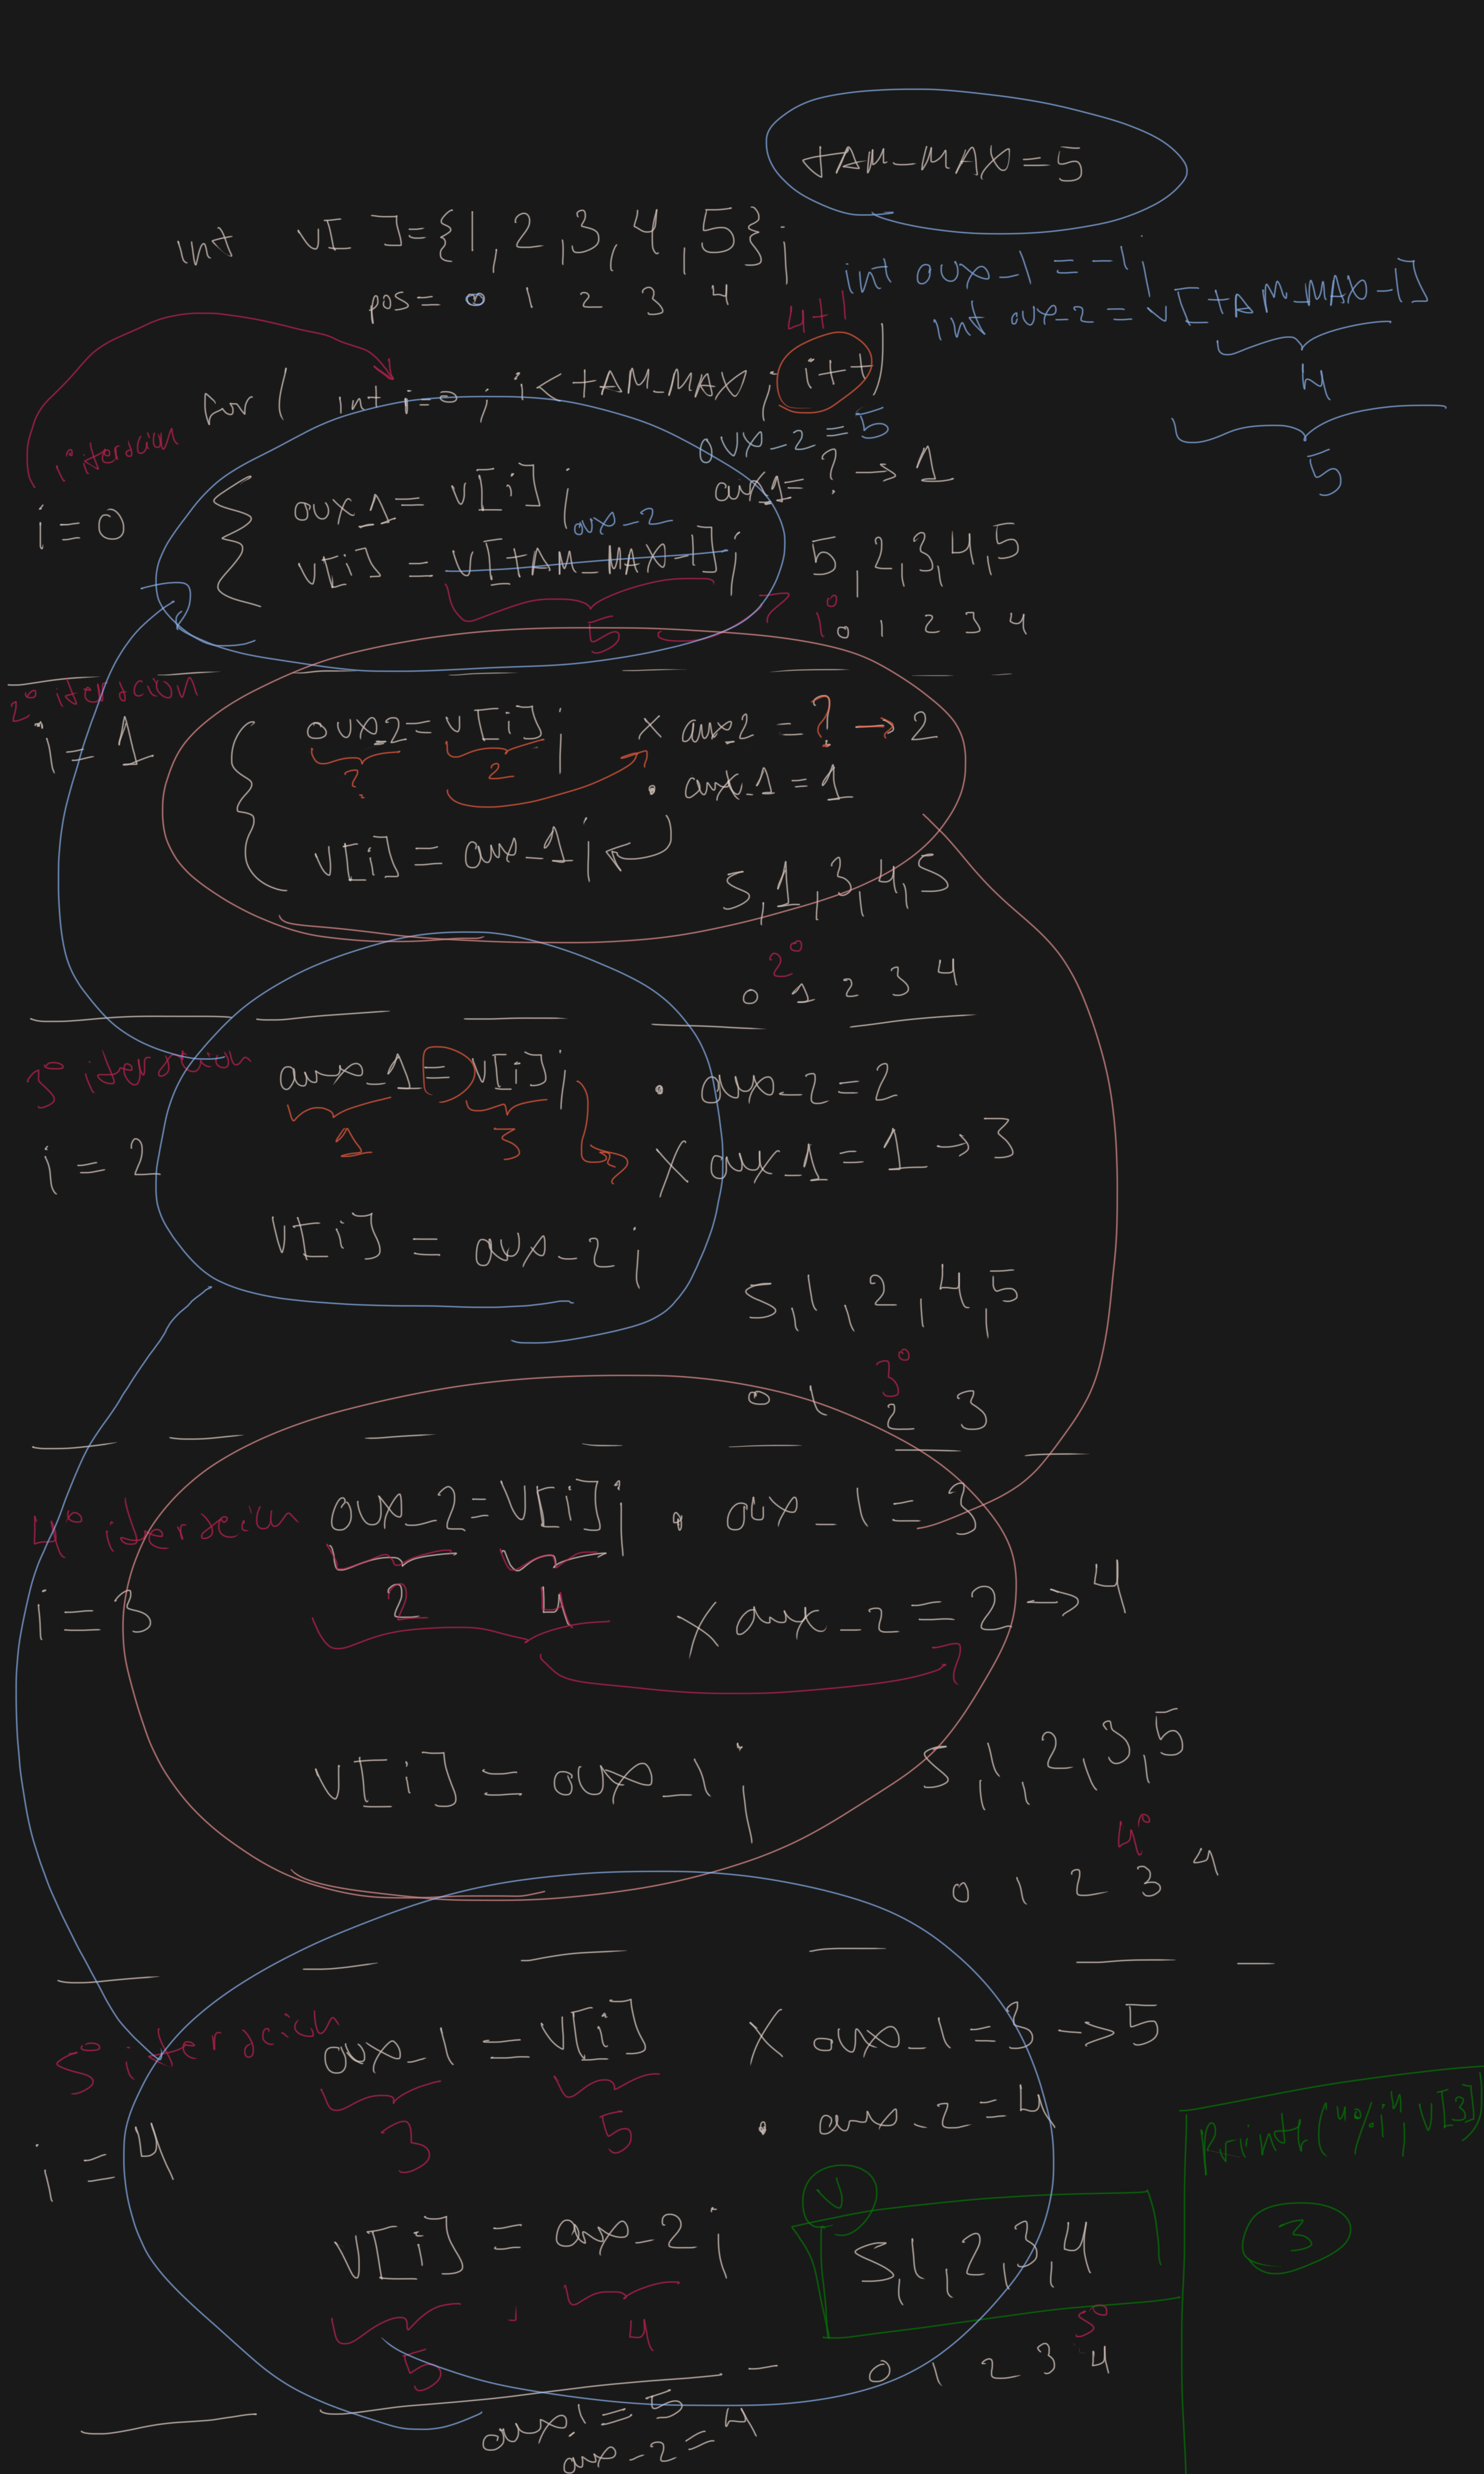 TAM_MAX=5
int v[ ]={1,2,3,4,5};
pos= 0 1 2 3 4
int aux_1 = -1;
int aux_2 = v[TAM_MAX-1]
4
5
4+1
for ( int i=0; i<TAM_MAX; i++)
1º iteracion
i=0
aux_2=5
aux1=? → 1
aux1= v[i];
aux_2
v[i] = v[TAM_MAX-1];
5
5,2,3,4,5
1º
0 1 2 3 4
2º iteracion
i=1
aux_2=v[i];
? 2
x aux2 = ? → 2
• aux_1=1
v[i]=aux_1;
5,1,3,4,5
2º
0 1 2 3 4
3º iteracion
i=2
aux_1=v[i];
1 3
• aux_2=2
x aux_1=1→3
v[i] = aux_2;
5,1,2,4,5
3º
0 1 2 3
4º iteracion
i=3
aux_2=v[i];
2 4
• aux_1=3
x aux_2=2→4
v[i]=aux_1;
5,1,2,3,5
4º
0 1 2 3 4
5º iteracion
i=4
aux_1=v[i]
3 5
x aux_1=3→5
• aux_2=4
v[i]=aux_2;
5 4
V
5,1,2,3,4
5º
0 1 2 3 4
printf("%i", v[3]
3
aux1=5
aux_2=4